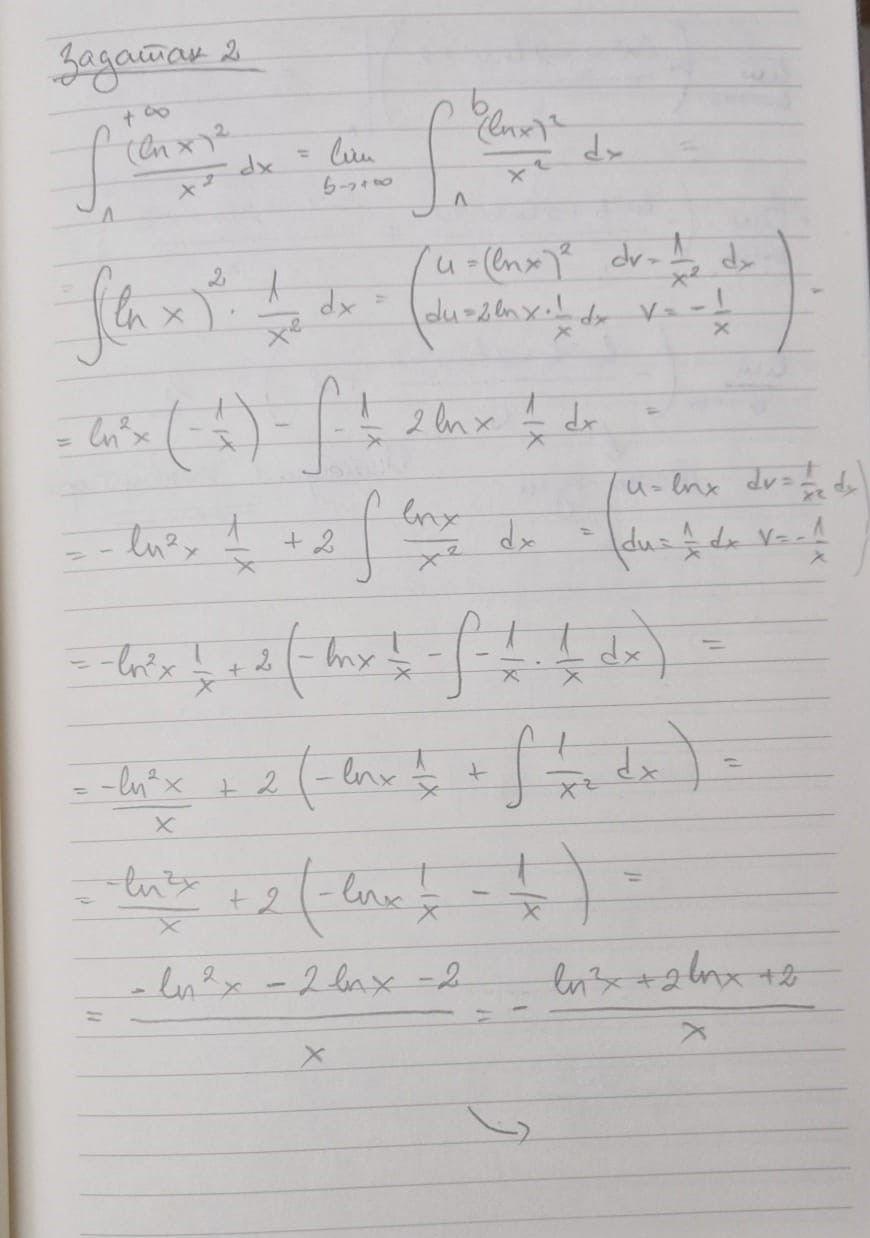 Задатак 2
∫₁^{+∞} (ln x)²/x² dx = lim_{b→+∞} ∫₁^b (lnx)²/x² dx =
= ∫(ln x)² · 1/x² dx = (u = (lnx)² dv = 1/x² dx; du = 2lnx · 1/x dx v = -1/x) =
= ln²x (-1/x) - ∫ -1/x 2 lnx 1/x dx =
= - ln²x 1/x + 2 ∫ lnx/x² dx = (u = lnx dv = 1/x² dx; du = 1/x dx v = -1/x)
= -ln²x 1/x + 2 (-lnx 1/x - ∫ -1/x · 1/x dx) =
= -ln²x/x + 2 (-lnx 1/x + ∫ 1/x² dx) =
= -ln²x/x + 2 (-lnx 1/x - 1/x) =
= (-ln²x - 2lnx - 2)/x = - (ln²x + 2lnx + 2)/x